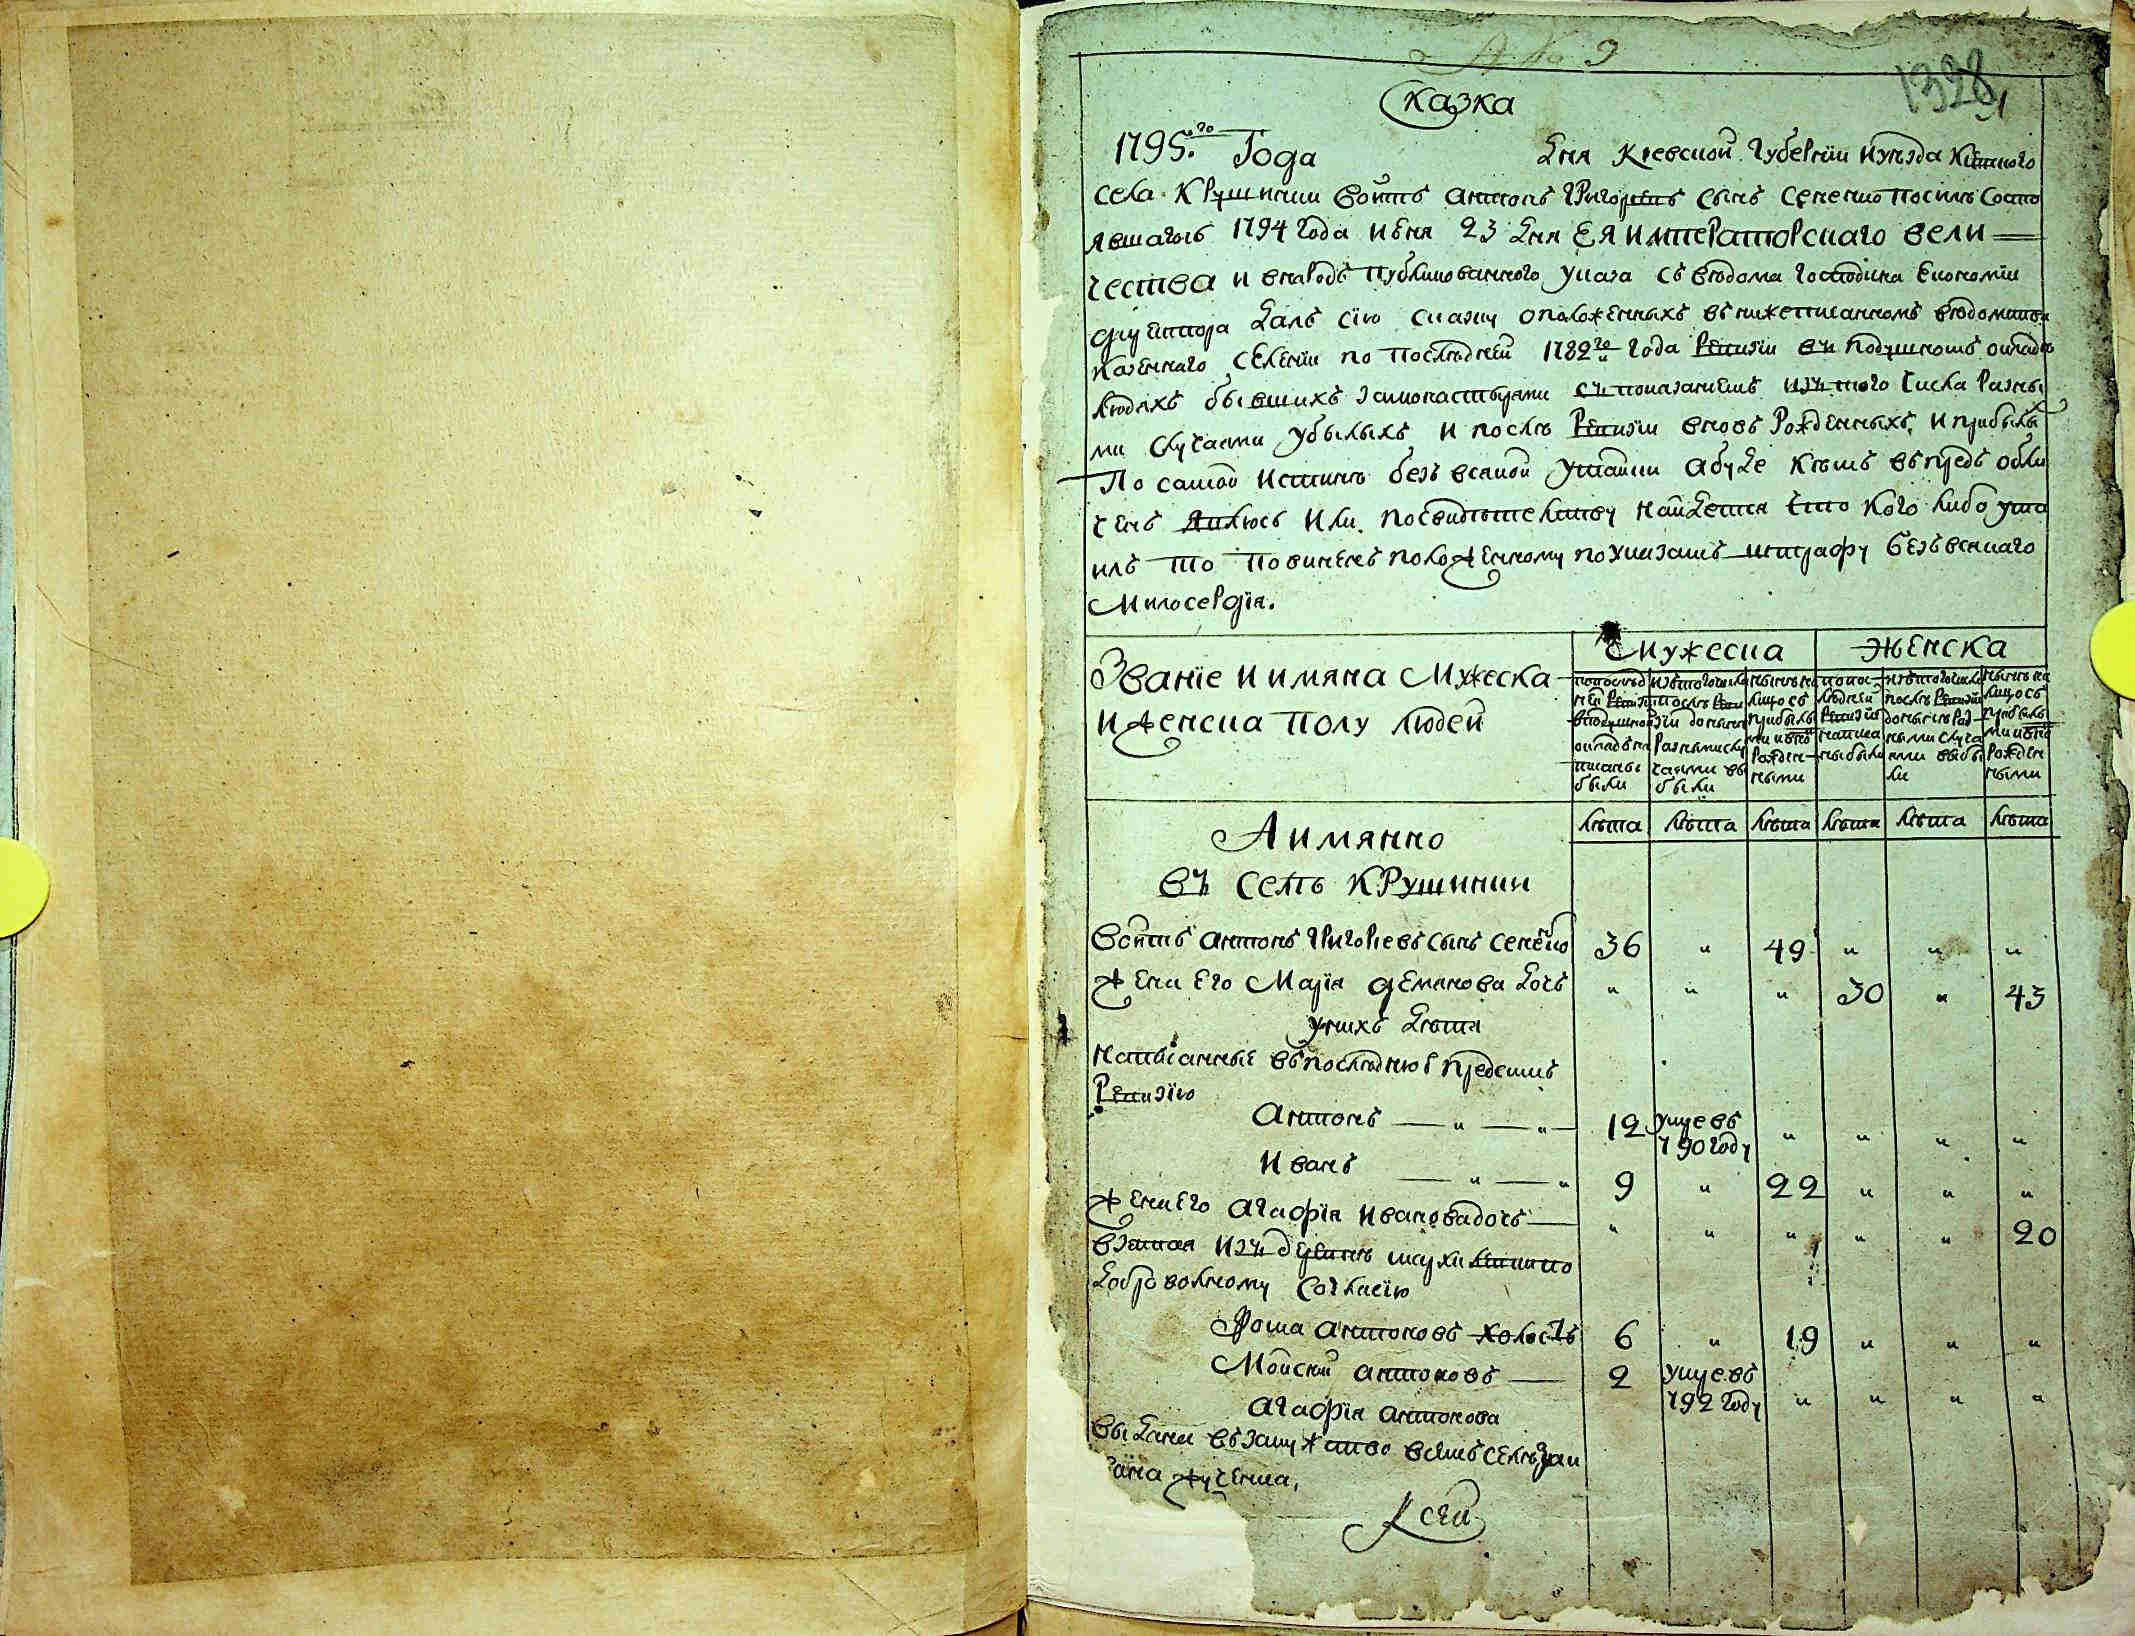 № 9
1328
1
Сказка
1795го Года Дня Киевской губернїи иуезда казенного
села Крушинки Войтъ Антонъ Григорiевъ сынъ Сененко посилѣ Состо
явшагось 1794 года июня 23 дня ЕЯ ИМПЕРАТОРСКАГО ВЕЛИ
ЧЕСТВА и внародъ публикованного указа съ вѣдома господина Економїи
директора далъ сїю сказку оположенныхъ въ нижеписанномъ вѣдомства
казенного селенїи по последней 1782го года Ревизїи въ подушномъ окладѣ
людяхъ бывшихъ замонастырями съ показанїемъ изъ того числа разны
ми случаями убылыхъ и послѣ Ревизїи вновь рожденныхъ, и прибылы
По самой Истиннѣ безъ всякой утайки абуде кѣмъ въпредь обли
ченъ явлюсь или посвидѣтелству найдется что кого либо ута
илъ то повиненъ положенному поуказамъ штрафу безъ всякаго
Милосердїя.
Званїе и имяна Мужеска
и женска полу людей
Мужеска
Женска
попослѣд
ней Ревизїи
вподушном
окладѣ на
писаны
были
изтогочисла
послѣ Реви
зїи донынѣ
разными слу
чаями вы
были
нынѣ на
лицо съ
прибылы
ми и вно
рожден
ными
попос
лѣдней
Ревизїи
написа
ны были
изтогочисла
послѣ Ревизїи
донынѣ раз
ными случа
ями выбы
ли
нынѣ на
лицо съ
прибылы
ми и вно
рожден
ными
Лѣта Лѣта Лѣта Лѣта Лѣта Лѣта
А имянно
въ селѣ Крушинки
Войтъ Антонъ Григорiевъ сынъ Сененко 36 „ 49 „ „ „
жена его Марїя Демянова дочь „ „ „ 30 „ 43
унихъ дѣти
написанные въпоследнюю предсимъ
Ревизїю
Антонъ — „ — „ — 12 умре въ
790 году „ „ „ „
Иванъ — „ — „ 9 „ 22 „ „ „
жена его Агафїя Иванова дочь — „ „ „ „ „ 20
взятая изъ деревнѣ
доброволному согласїю
Фома Антоновъ холостъ 6 „ 19 „ „ „
Мойсей Антоновъ — 2 умре въ
792 году „ „ „ „
Агафїя Антонова
выдана въ замужство всемъ селѣ
Ксенї